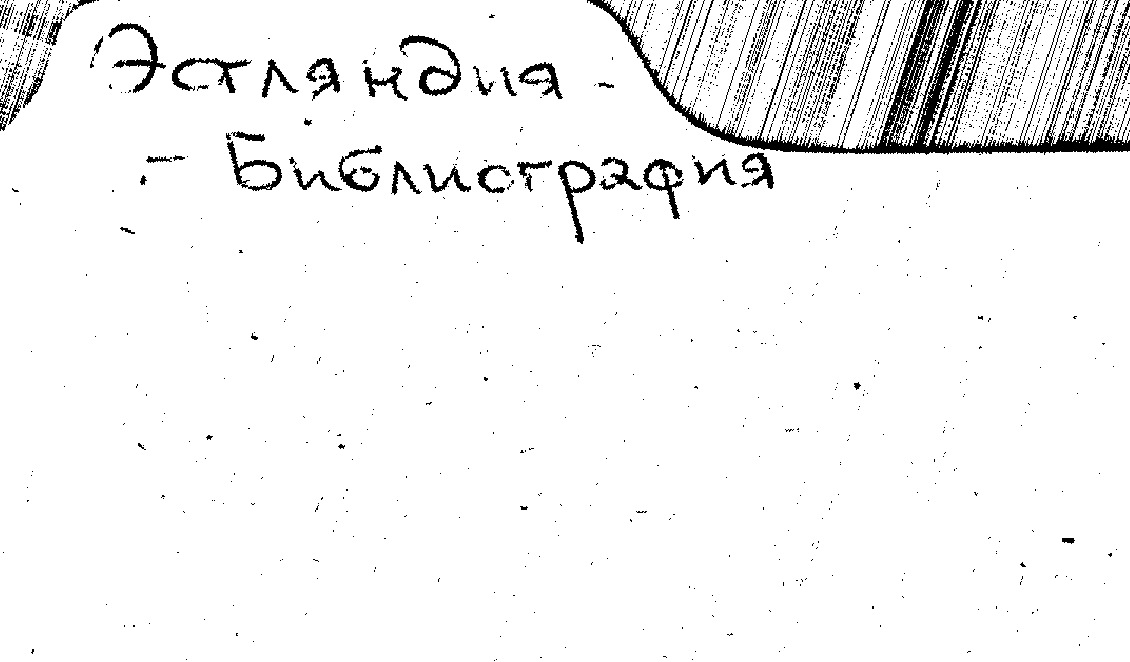 Эстляндия -
- Библиография